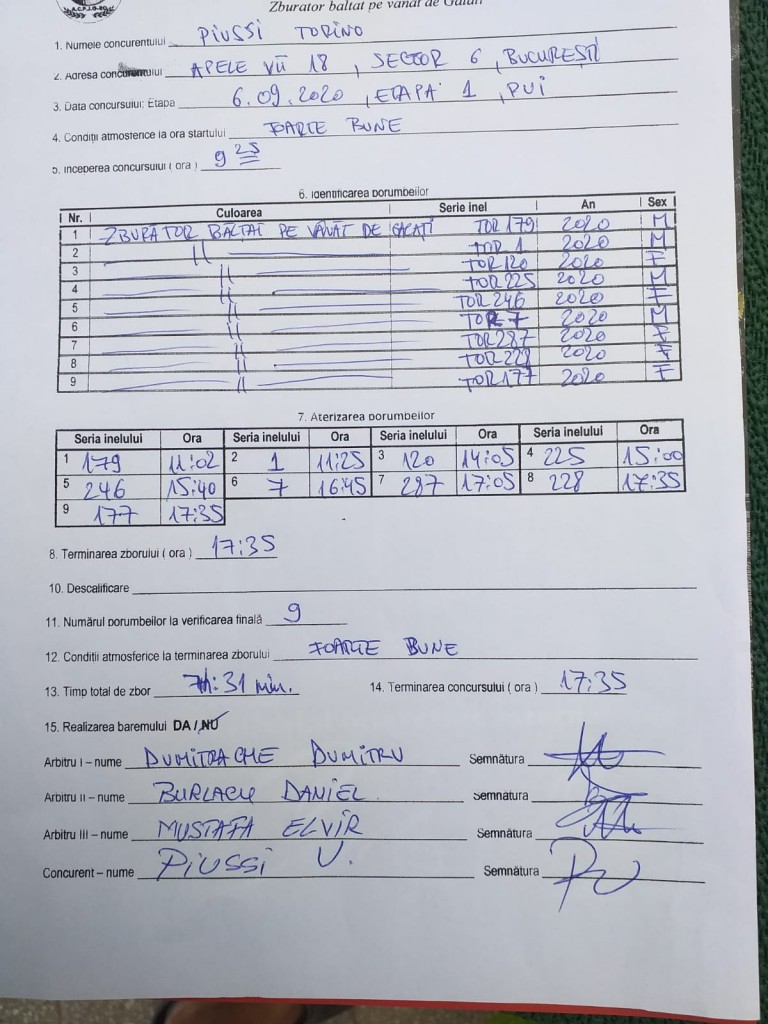 A.C.P.J.G.-90
Zburator baltat pe vanat de Galati
1. Numele concurentului PIUSSI TORINO
2. Adresa concurentului APELE VII 18, SECTOR 6, BUCUREȘTI
3. Data concursului; Etapa 6.09.2020, ETAPA 1, PUI
4. Conditii atmosferice la ora startului FOARTE BUNE
5. Inceperea concursului ( ora ) 9 25
6. Identificarea porumbeilor
Nr. Culoarea Serie inel An Sex
1 ZBURATOR BALTAT PE VÂNAT DE GALAȚI TOR 179 2020 M
2 —〃— TOR 1 2020 M
3 —〃— TOR 120 2020 F
4 —〃— TOR 225 2020 M
5 —〃— TOR 246 2020 F
6 —〃— TOR 7 2020 M
7 —〃— TOR 287 2020 F
8 —〃— TOR 228 2020 F
9 —〃— TOR 177 2020 F
7. Aterizarea porumbeilor
Seria inelului Ora Seria inelului Ora Seria inelului Ora Seria inelului Ora
1 179 11:02 2 1 11:25 3 120 14:05 4 225 15:00
5 246 15:40 6 7 16:45 7 287 17:05 8 228 17:35
9 177 17:35
8. Terminarea zborului ( ora ) 17:35
10. Descalificare
11. Numărul porumbeilor la verificarea finală 9
12. Conditii atmosferice la terminarea zborului FOARTE BUNE
13. Timp total de zbor 71:31 min. 14. Terminarea concursului ( ora ) 17:35
15. Realizarea baremului DA / NU
Arbitru I – nume DUMITRACHE DUMITRU Semnătura
Arbitru II – nume BURLACU DANIEL Semnatura
Arbitru III – nume MUSTAFA ELVIR Semnătura
Concurent – nume PIUSSI V. Semnătura